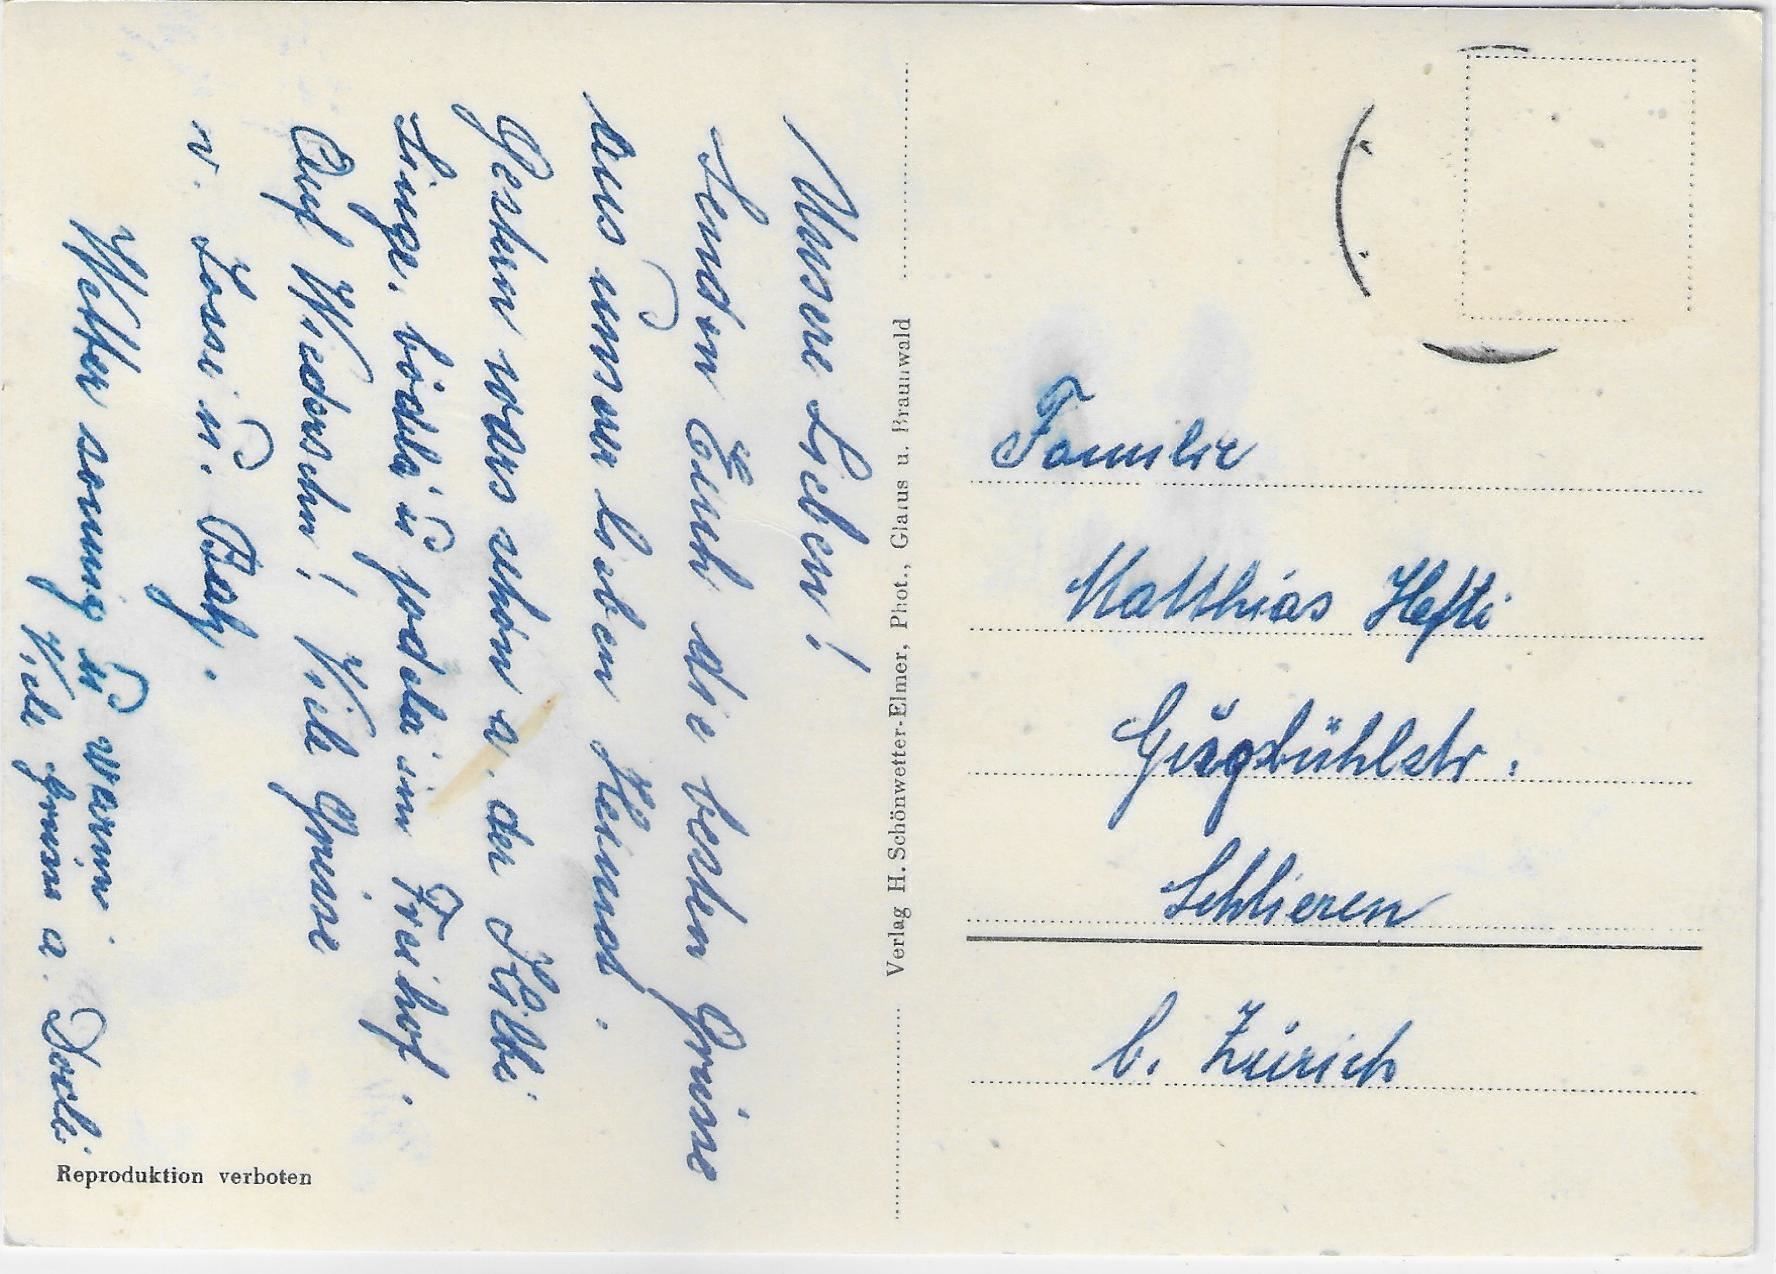 Unsere Lieben!
Senden Euch die besten Grüsse
aus unserer lieben Heimat.
Gestern wars schön a. der Kilbi
Linge, bödela u. jodela im Freihof.
Auf Wiedersehn! Viele Grüsse
v. Rosa u. Baby.
Wetter sonnig u. warm
Viele Grüsse a. Dorli.
Reproduktion verboten
Verlag H. Schönwetter-Elmer, Phot., Glarus u. Braunwald
Familie
Matthias Hefti
Schlieren
b. Zürich